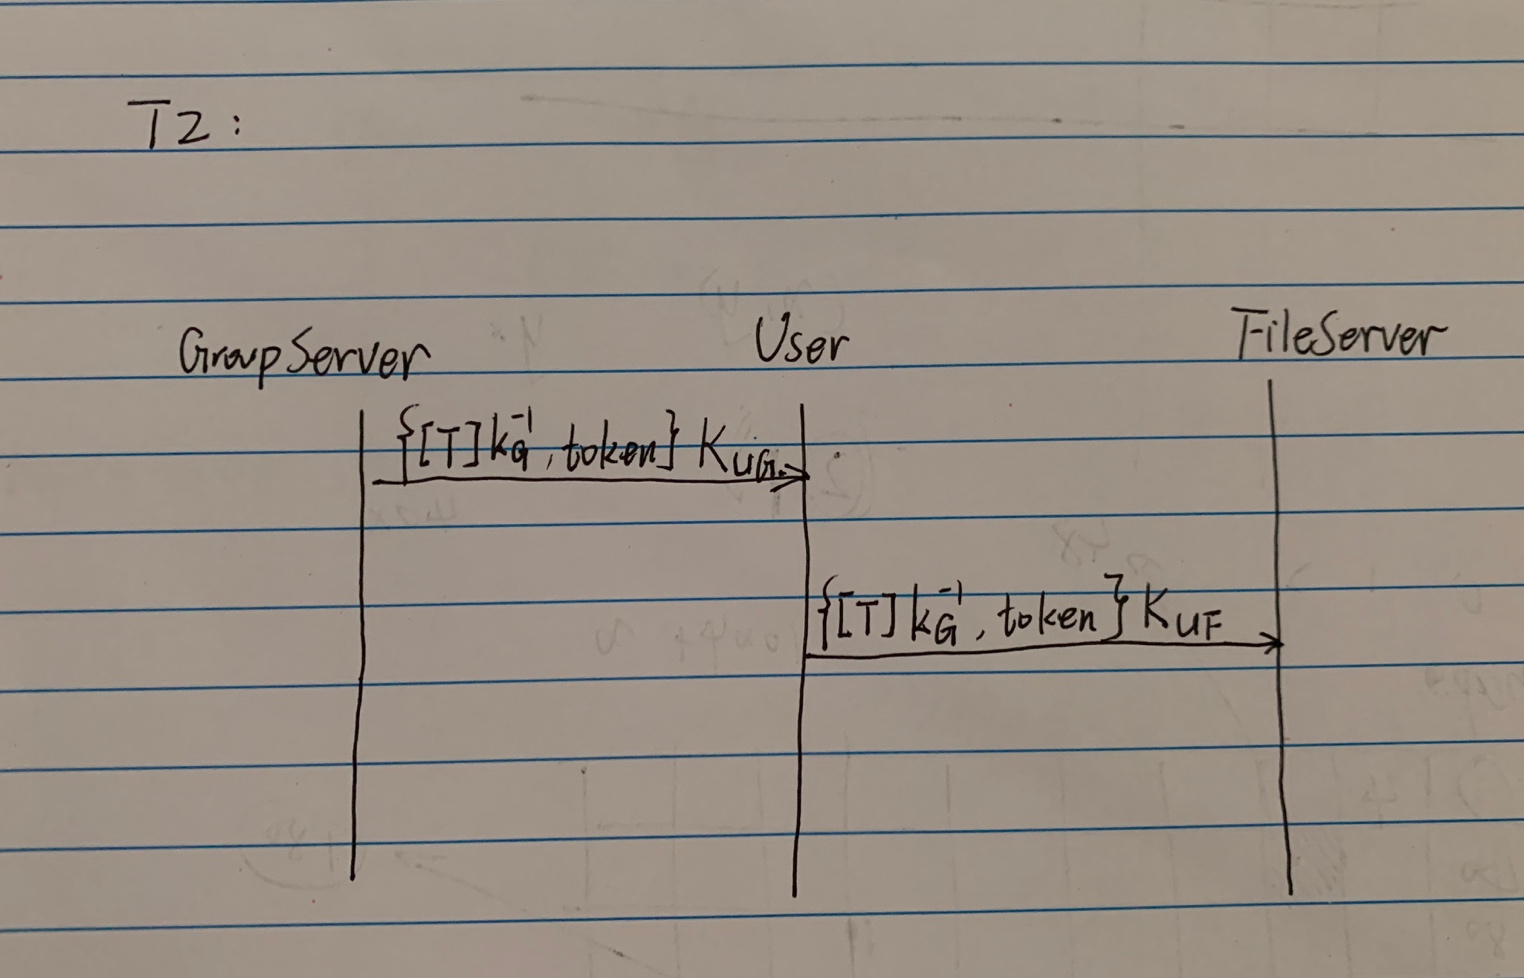 T2:
GroupServer User FileServer
{[T]k_G^-1, token} K_UG
{[T]k_G^-1, token} K_UF